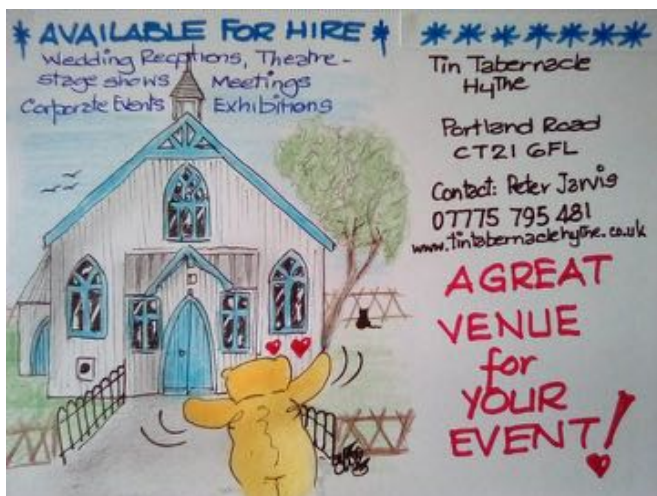 * AVAILABLE FOR HIRE *
Wedding Recptions, Theatre -
stage shows Meetings
Corporate Events Exhibitions
*******
Tin Tabernacle
Hythe
Portland Road
CT21 6FL
Contact: Peter Jarvis
07775 795 481
www.tintabernaclehythe.co.uk
A GREAT
VENUE
for
YOUR
EVENT!